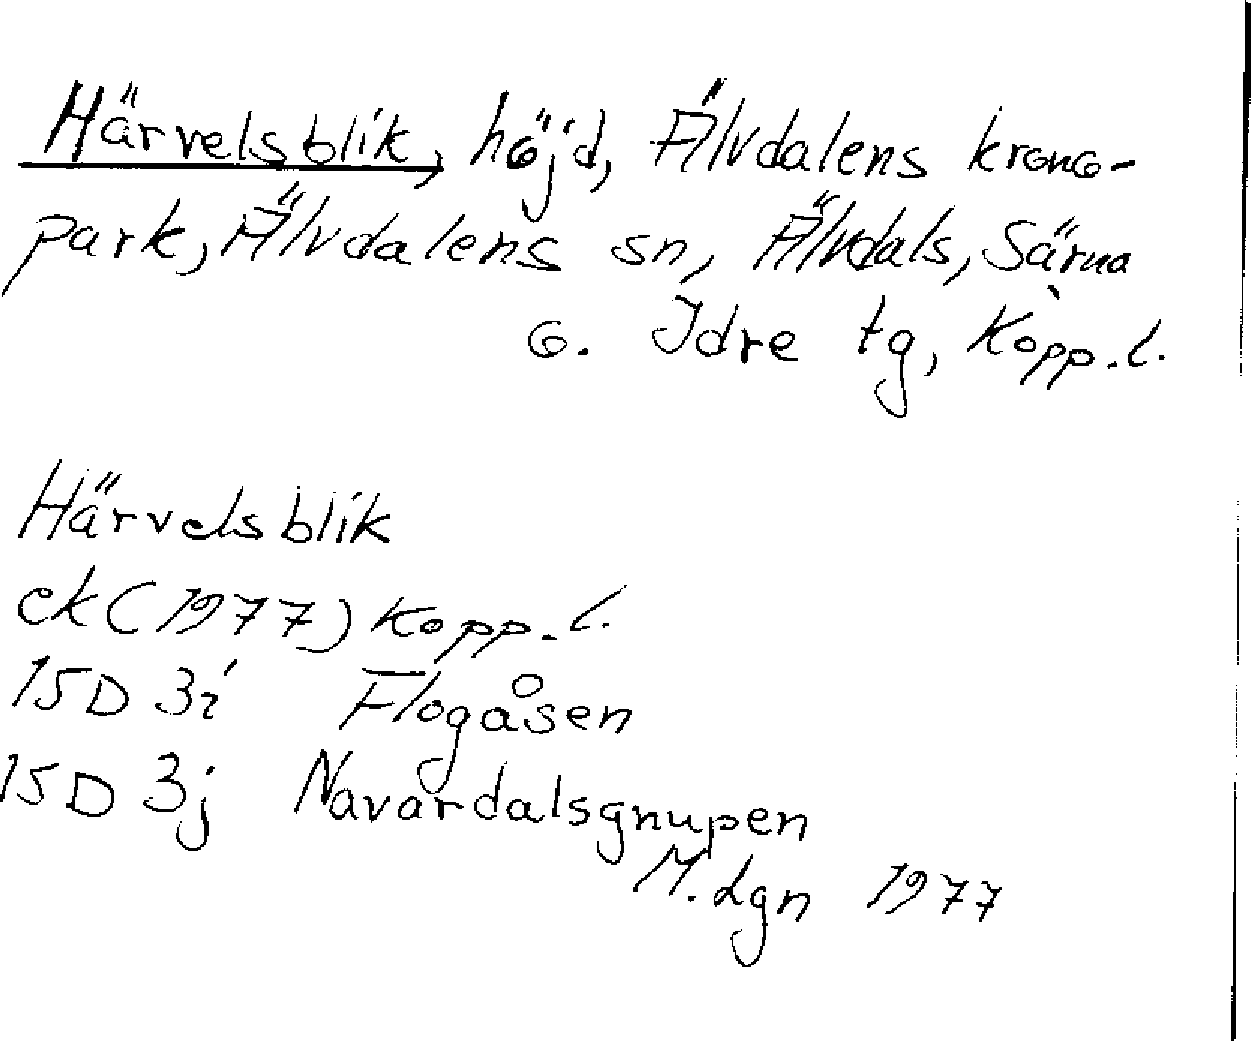 Härvelsblik, höjd, Älvdalens krono-
park, Älvdalens sn, Älvdals, Särna
o. Idre tg, Kopp.l.
Härvelsblik
ek (1977) Kopp.l.
15D 3i Flogåsen
15D 3j Navardalsgnupen
M.Lgn 1977